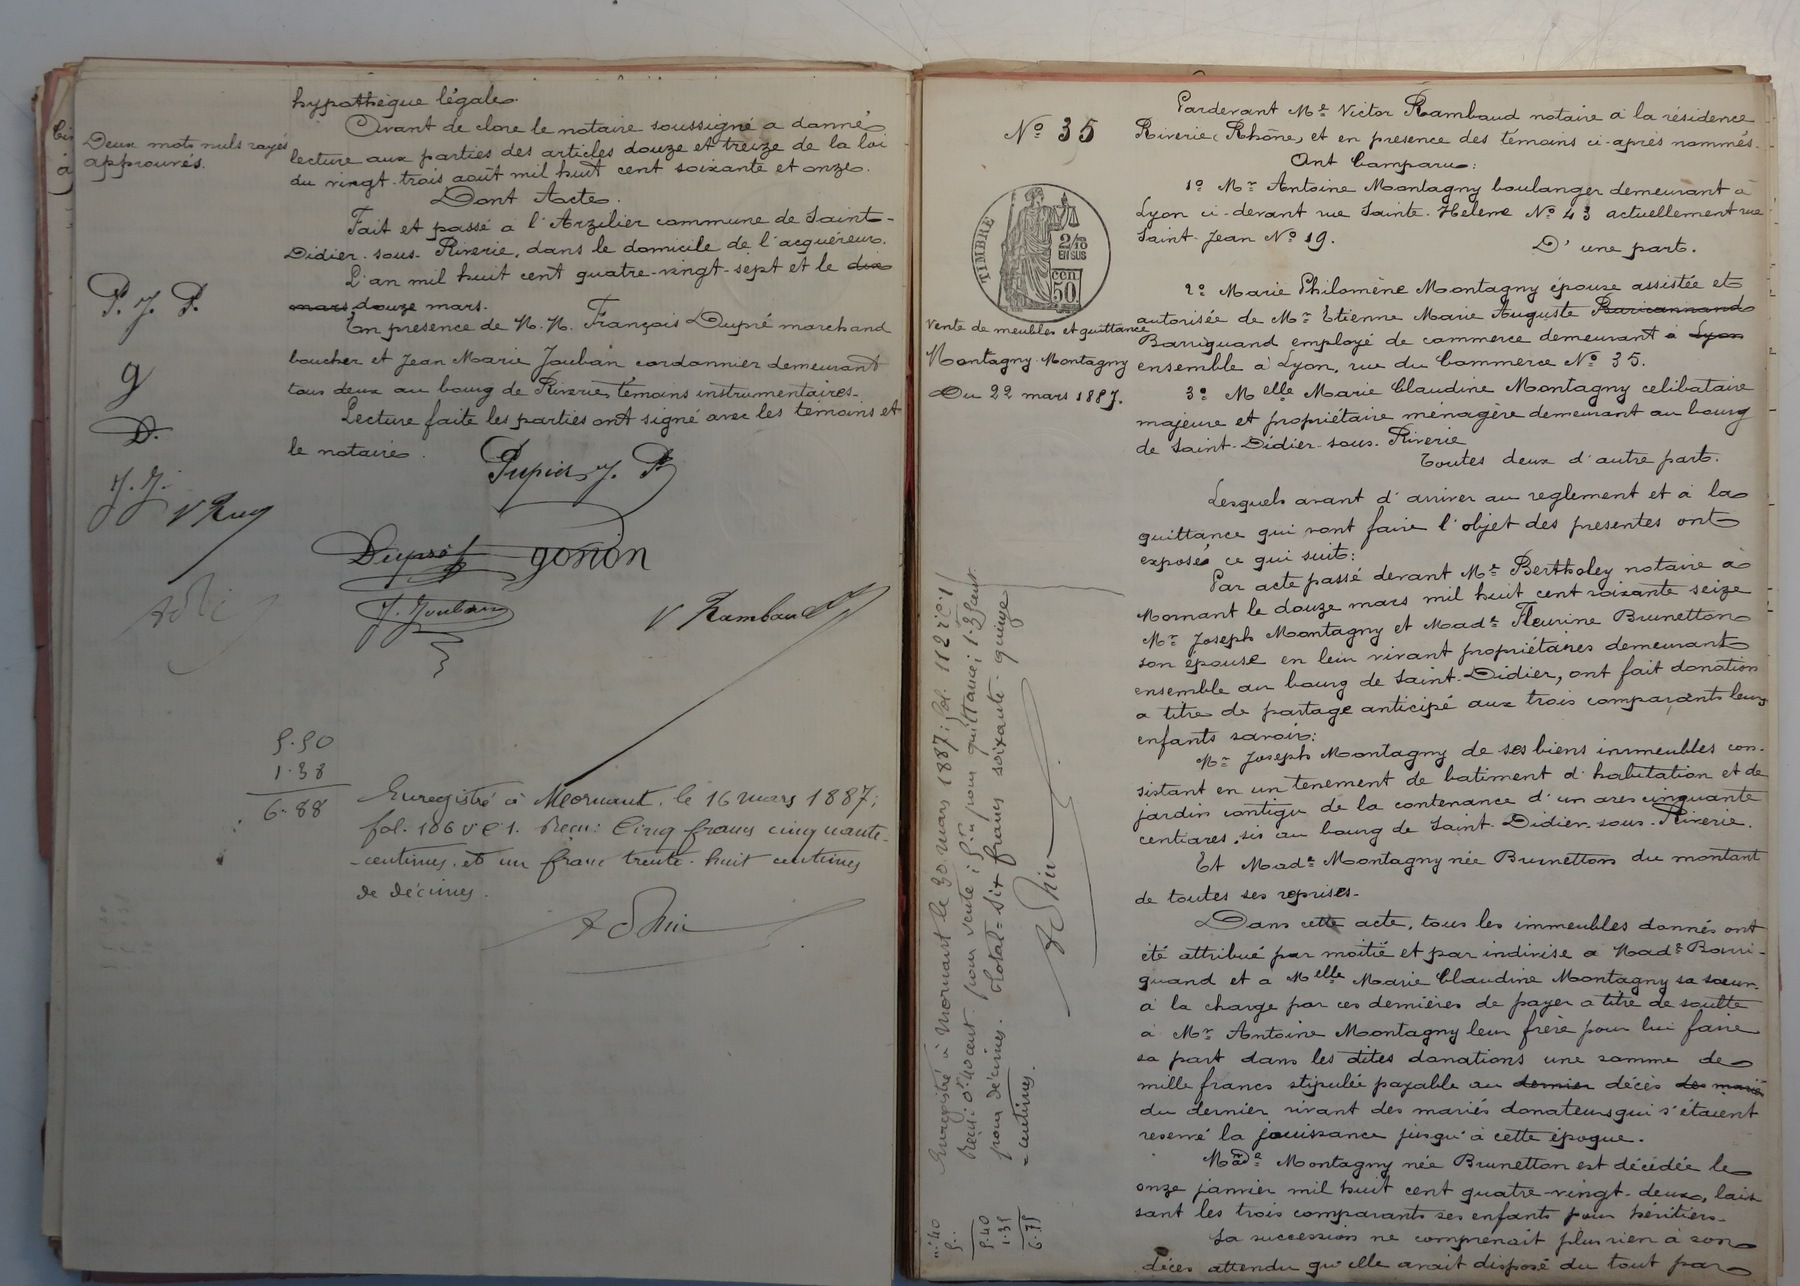 hypothèque légale.
Avant de clore le notaire soussigné a donné
lecture aux parties des articles douze et treize de la loi
du vingt-trois août mil huit cent soixante et onze.
Dont Acte.
Fait et passé à l'Arzilier commune de Saint-
Didier-sous-Riverie, dans le domicile de l'acquéreur.
L'an mil huit cent quatre-vingt-sept et le dix
mars douze mars.
En présence de M.M. François Dupré marchand
boucher et Jean Marie Jouban cordonnier demeurant
tous deux au bourg de Riverie, témoins instrumentaires.
Lecture faite les parties ont signé avec les témoins et
le notaire.
Deux mots nuls rayés
approuvés.
P. J. P.
g
D.
J. J.
V Ram
Pupier J. P
Dupré gonon
J. Jouban
V Rambaud
5.50
1.38
6.88
Enregistré à Mornant, le 16 mars 1887;
fol. 106 v c 1. Reçu: Cinq francs cinquante-
-centimes, et un franc trente-huit centimes
de décimes.
N° 35
TIMBRE
2/10
EN SUS
50
cen
Vente de meubles et quittance
Montagny-Montagny
Du 22 mars 1887.
Enregistré à Mornant le 30 mars 1887; fol. 112
Reçu: 0f.40 cent. pour vente; 5f pour quittance; 1.35 cent
pour décimes. Total = Six francs soixante-quinze
-centimes.
0.40
5..
5.40
1.35
6.75
Pardevant Me Victor Rambaud notaire à la résidence
Riverie (Rhône), et en présence des témoins ci-après nommés.
Ont Comparu:
1° Mr Antoine Montagny boulanger demeurant à
Lyon ci-devant rue Sainte-Helene N° 43 actuellement rue
Saint-Jean N° 19.
D'une part.
2° Marie Philomène Montagny épouse assistée et
autorisée de Mr Etienne Marie Auguste
Barriquand employé de commerce demeurant à Lyon
ensemble à Lyon, rue du Commerce N° 35.
3° Melle Marie Claudine Montagny celibataire
majeure et propriétaire ménagère demeurant au bourg
de Saint-Didier-sous-Riverie
Toutes deux d'autre part.
Lesquels avant d'arriver au reglement et à la
quittance qui vont faire l'objet des presentes ont
exposé ce qui suit:
Par acte passé devant Me Bertholey notaire à
Mornant le douze mars mil huit cent soixante seize
Mr Joseph Montagny et Made Fleurine Brunetton
son épouse en leur vivant propriétaires demeurant
ensemble au bourg de Saint-Didier, ont fait donation
a titre de partage anticipé aux trois comparants leurs
enfants savoir:
Mr Joseph Montagny de ses biens immeubles con-
sistant en un tenement de batiment d'habitation et de
jardin contigu de la contenance d'un ares cinquante
centiares, sis au bourg de Saint-Didier-sous-Riverie.
Et Made Montagny née Brunetton du montant
de toutes ses reprises.
Dans cette acte, tous les immeubles donnés ont
été attribué par moitié et par indivise a Made Barri-
quand et a Melle Marie Claudine Montagny sa soeur.
à la charge par ces dernières de payer a titre de soulte
à Mr Antoine Montagny leur frère pour lui faire
sa part dans les dites donations une somme de
mille francs stipulée payable au dernier décès des mariés
du dernier vivant des mariés donateurs qui s'étaient
reservé la jouissance jusqu'à cette époque.
Made Montagny née Brunetton est décédée le
onze janvier mil huit cent quatre-vingt-deux, lais-
sant les trois comparants ses enfants pour héritiers.
Sa succession ne comprenait plus rien a son
décès attendu qu'elle avait disposé du tout par